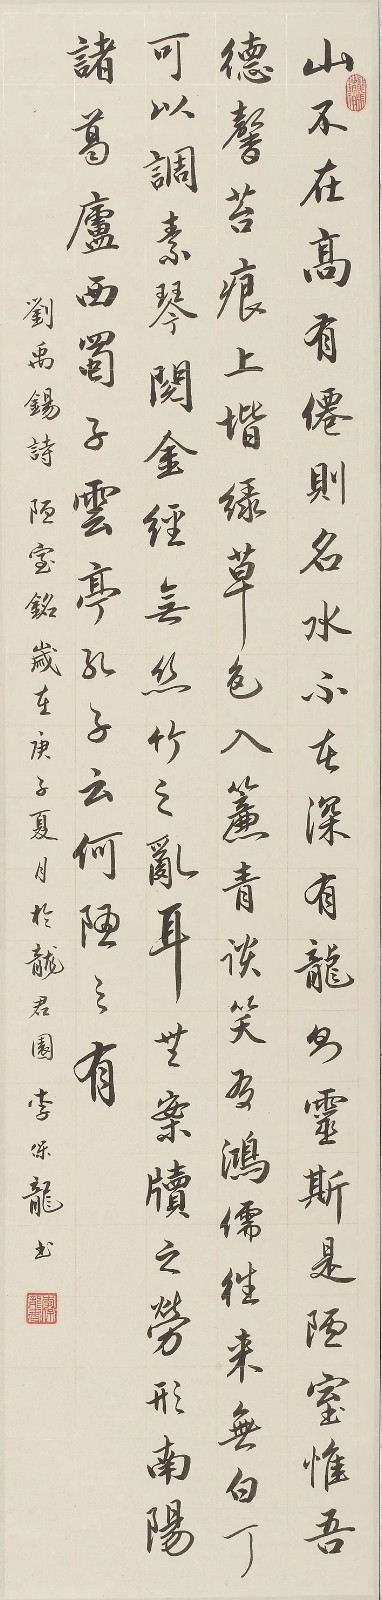 山不在高有僊則名水不在深有龍則靈斯是陋室惟吾
德馨苔痕上堦綠草色入簾青談笑有鴻儒往来無白丁
可以調素琴閱金經無絲竹之亂耳無案牘之勞形南陽
諸葛廬西蜀子雲亭孔子云何陋之有
劉禹錫詩陋室銘歲在庚子夏月於龍君園李保龍書